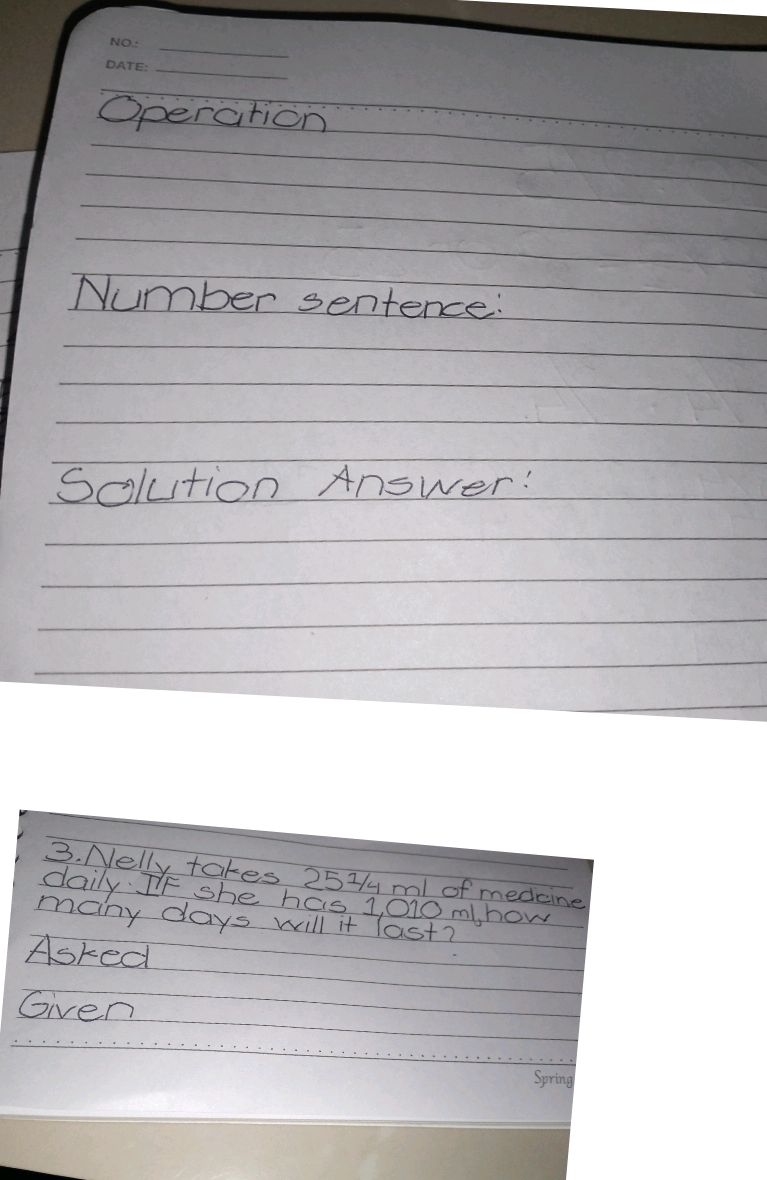 NO.:
DATE:
Operation
Number sentence:
Solution Answer:
3. Nelly takes 25 1/4 ml of medcine
daily. IF she has 1,010 ml, how
many days will it last?
Asked
Given
Spring